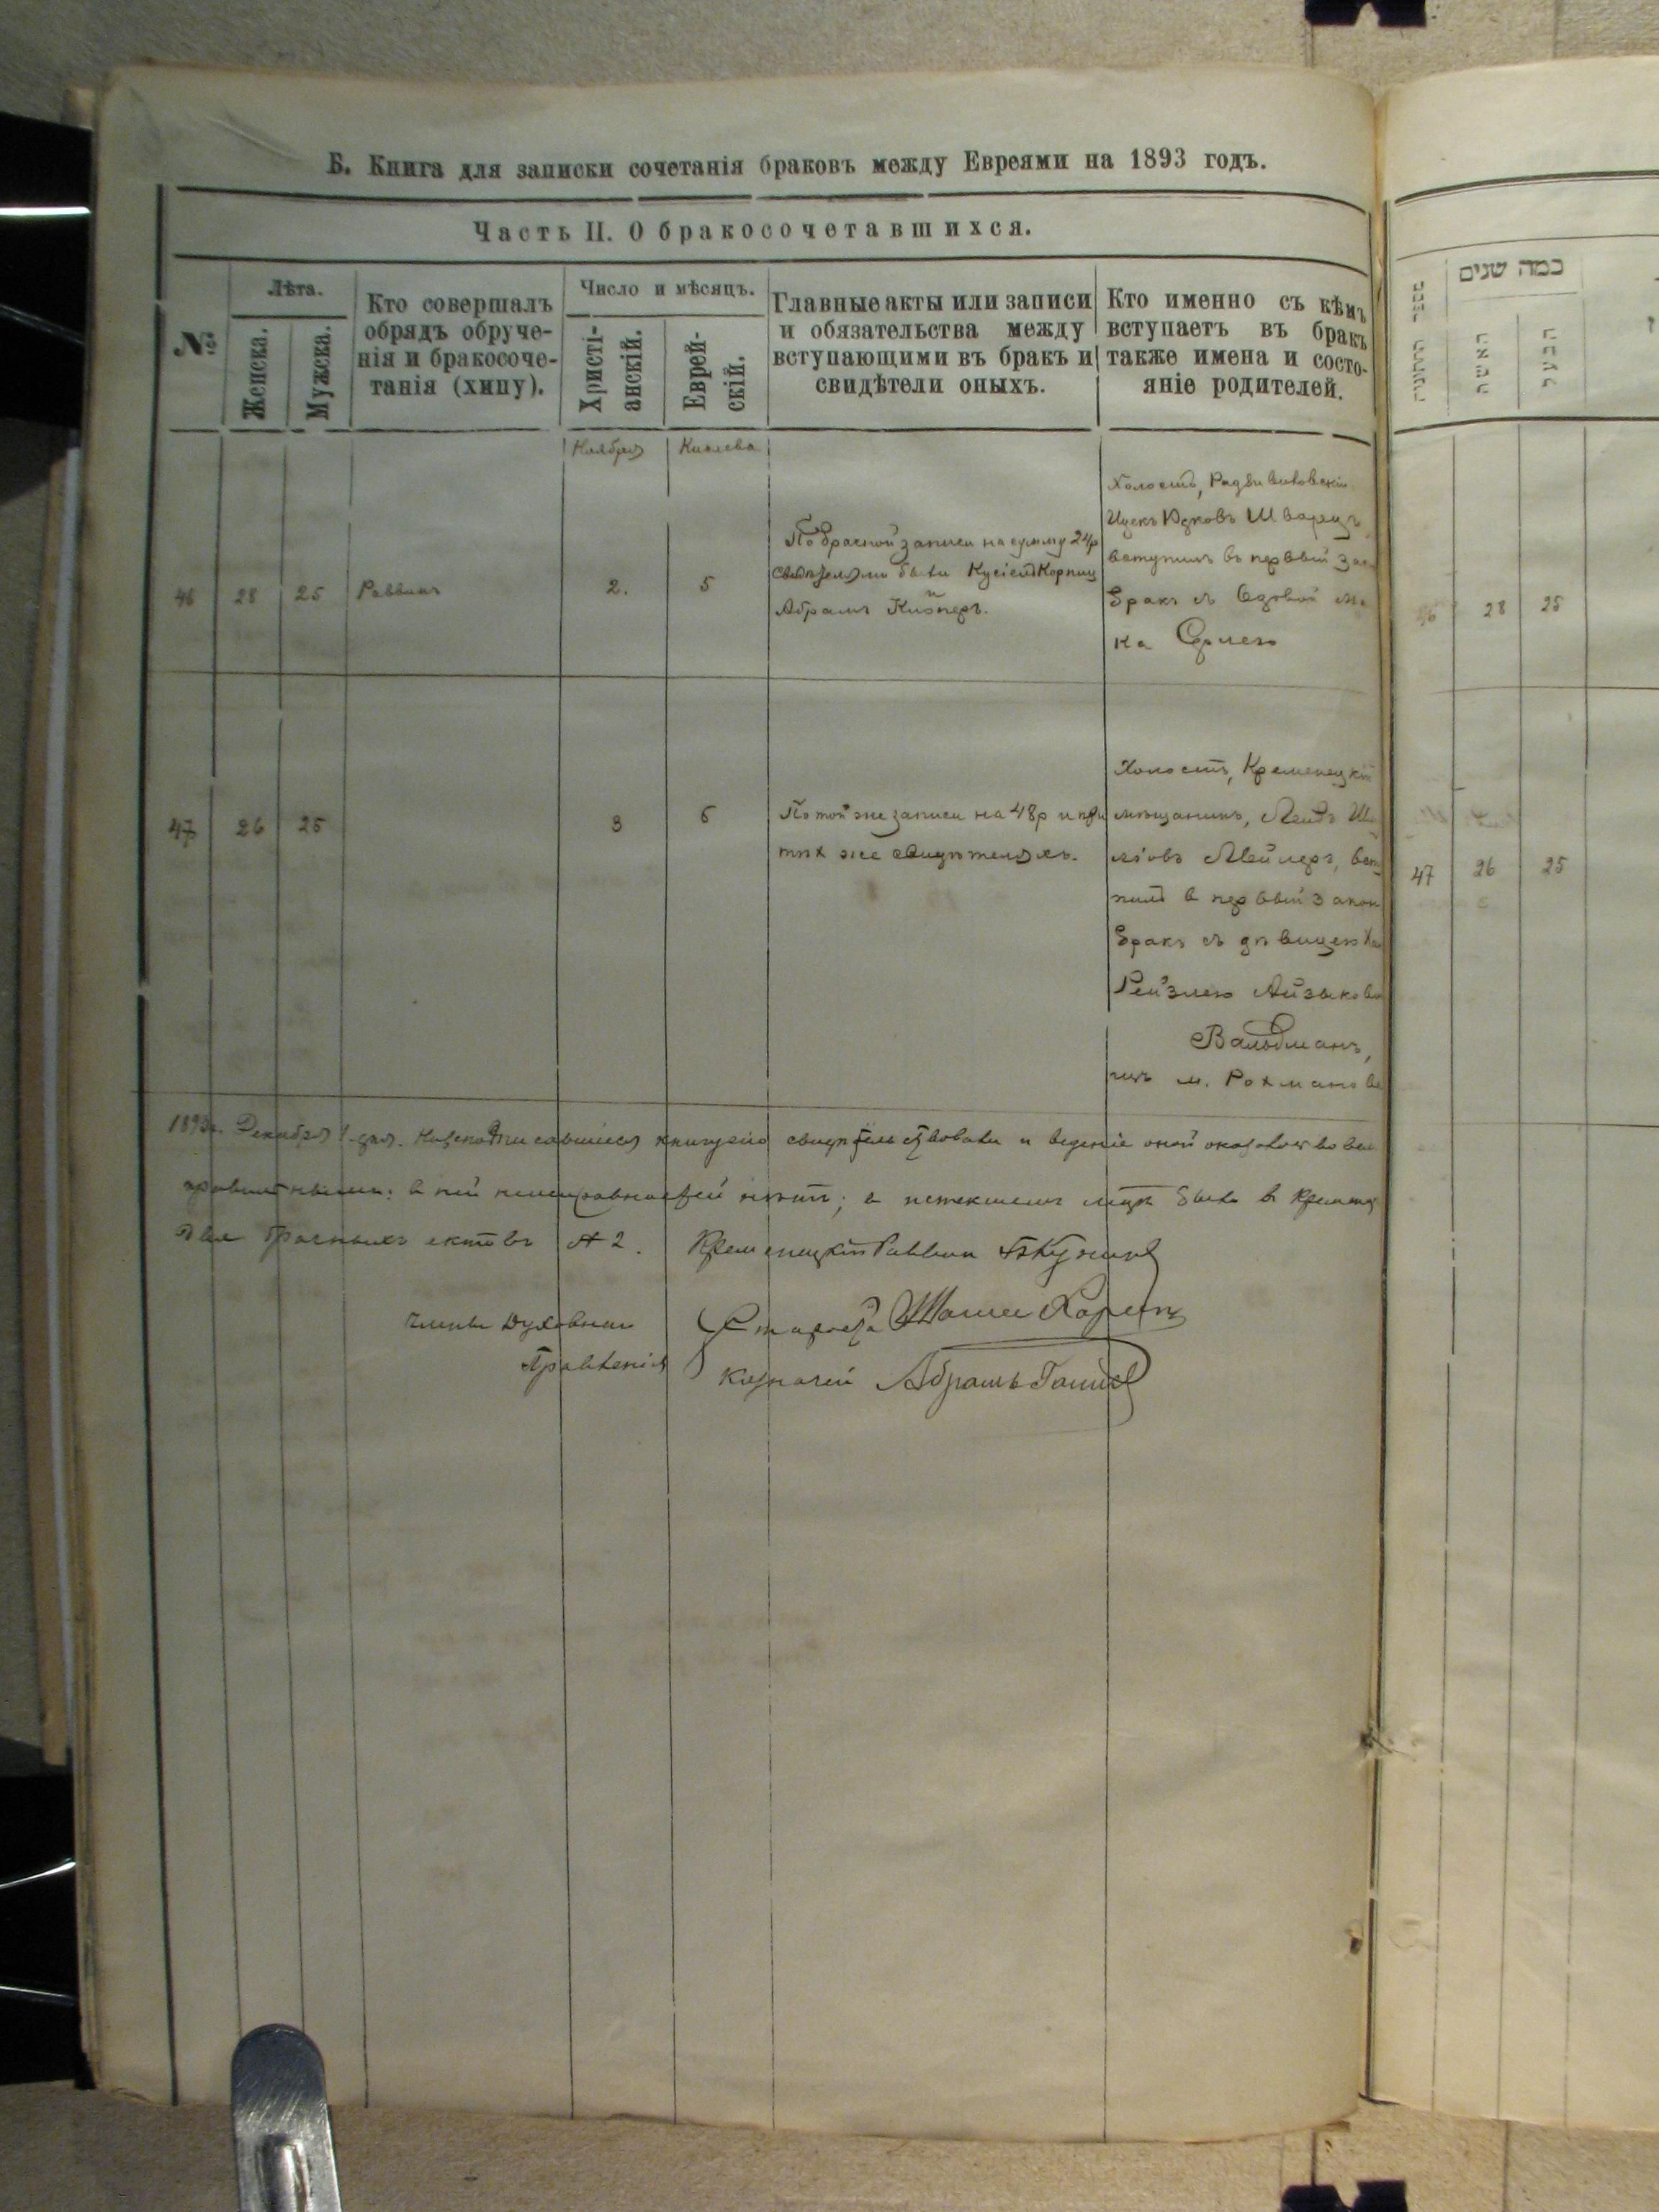 Б. Книга для записки сочетанія браковъ между Евреями на 1893 годъ.
Часть II. О бракосочетавшихся.
№
Лѣта.
Женска.
Мужска.
Кто совершалъ
обрядъ обруче-
нія и бракосоче-
танія (хипу).
Число и мѣсяцъ.
Христі-
анскій.
Еврей-
скій.
Главные акты или записи
и обязательства между
вступающими въ бракъ и
свидѣтели оныхъ.
Кто именно съ кѣмъ
вступаетъ въ бракъ
также имена и состо-
яніе родителей.
Ноября
Кислева
46
28
25
Раввинъ
2.
5
По брачной записи на сумму 24р
свидѣтелями были
и
Абрамъ
Холостъ, Радзивиловскій
Ицекъ Юдковъ Шварцъ
вступилъ въ первый зак
бракъ съ вдовой
ка
47
26
25
3
6
По той же записи на 48р и при
тѣх же свидѣтеляхъ.
Холостъ, Кременецкій
мѣщанинъ, Лейб Ш
Мейлеръ, всту
пилъ в первый закон
бракъ съ дѣвицею Ха
Рейзлею Айзыков
Вальдманъ,
изъ м. Рохманов
1893г. Декабря 1 дня. Нижеподписавшіеся книгу сію свидѣтельствовали и веденіе оной оказалось во всем
правильнымъ: в ней неисправностей нѣтъ; в истекшемъ мцѣ было в Кременцѣ
два брачныхъ актовъ № 2. Кременецкій Раввинъ
Члены Духовнаго
Правленія
Староста
Казначей Абрамъ
מספר החתונות
כמה שנים
האשה
הבעל
46
28
25
47
26
25